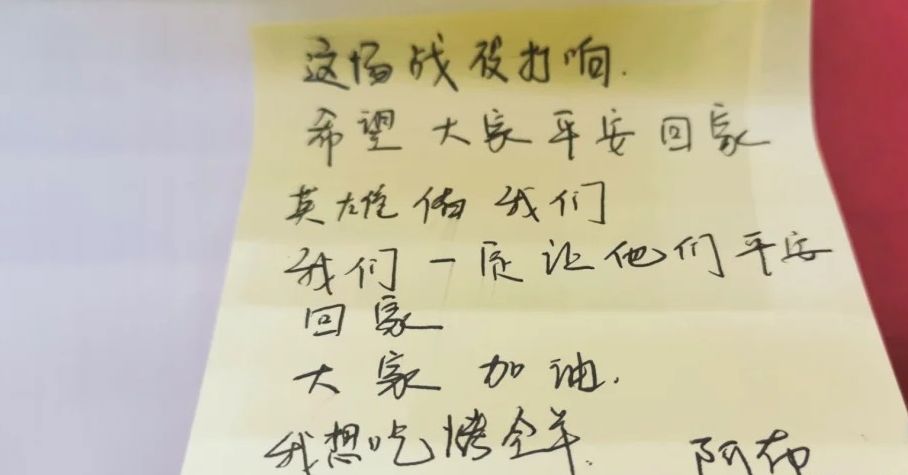 这场战役打响.
希望大家平安回家
英雄佑我们
我们一定让他们平安
回家
大家加油.
我想吃烤全羊. 阿布